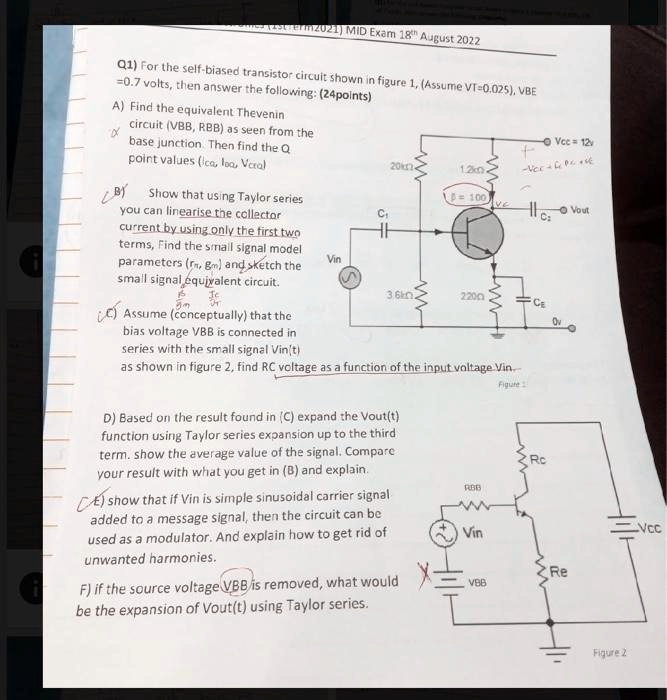 (1stTerm2021) MID Exam 18th August 2022
Q1) For the self-biased transistor circuit shown in figure 1, (Assume VT=0.025), VBE
=0.7 volts, then answer the following: (24points)
A) Find the equivalent Thevenin
circuit (VBB, RBB) as seen from the
base junction. Then find the Q
point values (ICQ, IBQ, VCEQ)
B) Show that using Taylor series
you can linearise the collector
current by using only the first two
terms, Find the small signal model
parameters (rπ, gm) and sketch the
small signal equivalent circuit.
C) Assume (conceptually) that the
bias voltage VBB is connected in
series with the small signal Vin(t)
as shown in figure 2, find RC voltage as a function of the input voltage Vin.
Vcc = 12v
20kΩ
1.2kΩ
β= 100
Vc
C1
C2
Vout
Vin
3.6kΩ
220Ω
CE
0v
Figure 1
D) Based on the result found in (C) expand the Vout(t)
function using Taylor series expansion up to the third
term. show the average value of the signal. Compare
your result with what you get in (B) and explain.
E) show that if Vin is simple sinusoidal carrier signal
added to a message signal, then the circuit can be
used as a modulator. And explain how to get rid of
unwanted harmonies.
F) if the source voltage VBB is removed, what would
be the expansion of Vout(t) using Taylor series.
Rc
RBB
Vin
VCC
VBB
Re
Figure 2